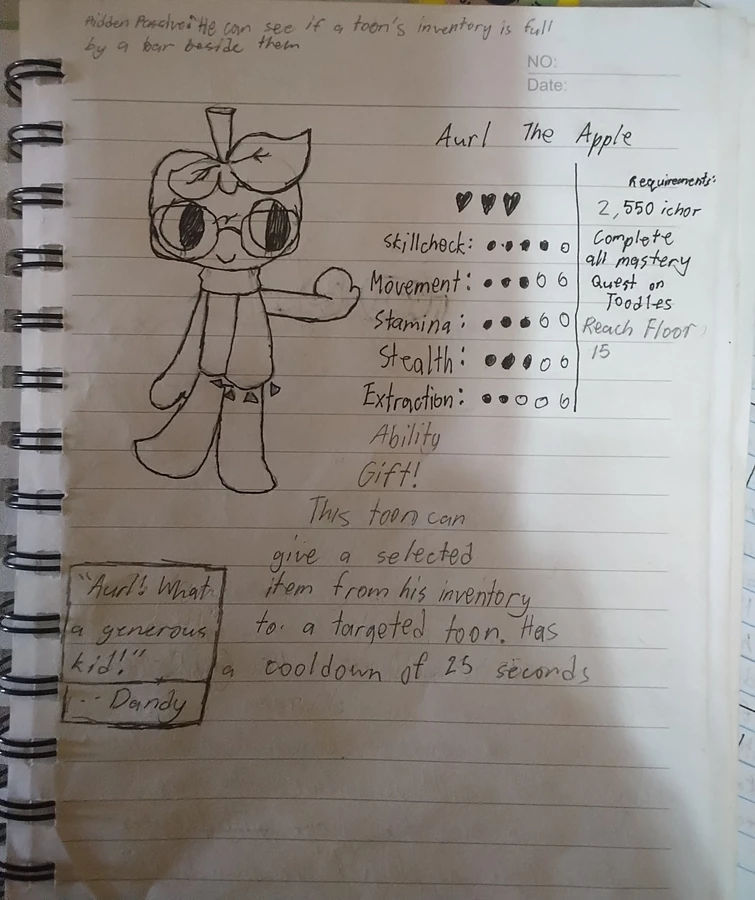 Hidden Passive: He can see if a toon's inventory is full
by a bar beside them
NO:
Date:
Aurl The Apple
skillcheck:
Movement:
Stamina:
Stealth:
Extraction:
Requirements:
2,550 ichor
Complete
all mastery
Quest on
Toodles
Reach Floor
15
Ability
Gift!
This toon can
give a selected
item from his inventory
to a targeted toon. Has
a cooldown of 25 seconds
"Aurl! What
a generous
kid!"
-- Dandy